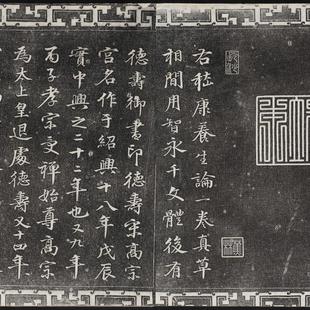 右嵇康養生論一卷真草
相間用智永千文體後有
德壽御書印德壽宋高宗
宮名作于紹興十八年戊辰
實中興之二十二年也又九年
丙子孝宗受禪始尊高宗
為太上皇退處德壽又十四年